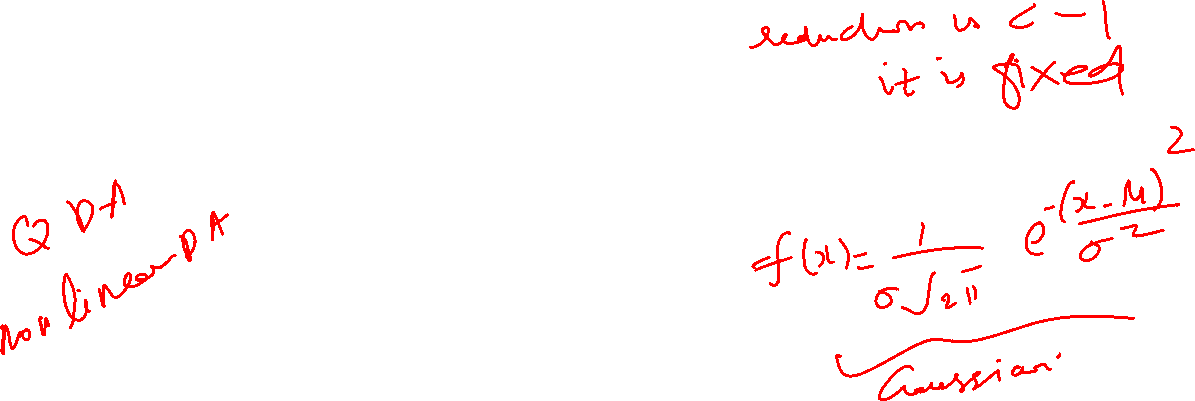 reduction is c - 1
it is fixed
QDA
non linear DA
f(x) = 1 / σ√2π e^-(x-μ)^2 / σ^2
Gaussian